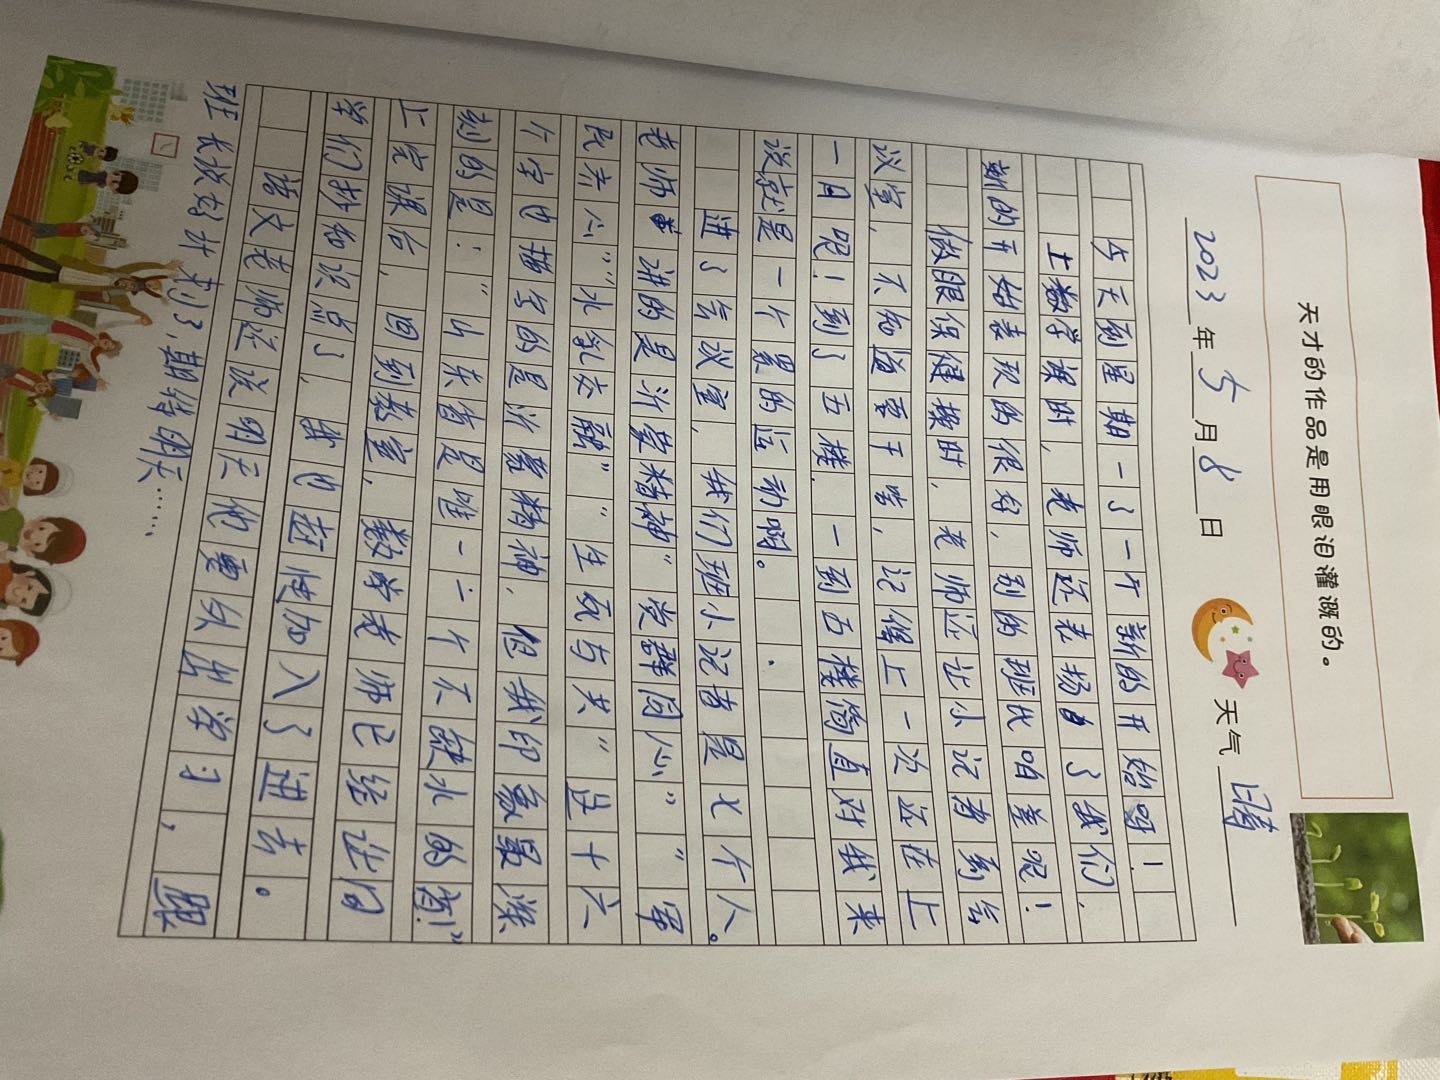 天才的作品是用眼泪灌溉的。
2023年5月8日 天气 晴
今天到星期一了一个新的开始啊！
上数学课时，老师还表扬了我们，
新的开始表现的很好，别的班比咱差呢！
做眼保健操时，老师还让小记者到会
议室，不知道要干啥，记得上一次还在上
一月吧！到了五楼，一到五楼简直对我来
说就是一个累的运动啊。
进了会议室，我们班小记者是七个人。
老师讲的是沂蒙精神“党群同心”“军
民齐心”“水乳交融”“生死与共”这十六
个字也揭了的是沂蒙精神，但我印象最深
刻的是：“山东省是唯一一个不缺水的省！”
上完课后，回到教室，数学老师已经让同
学们抄知识点了，我也赶快加入了进去。
语文老师还说明天他要从出学习，跟
班长放好计划了，期待明天……